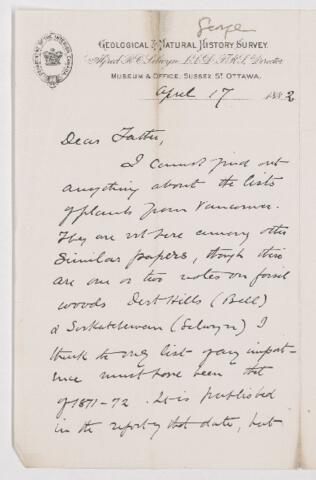 George
GEOLOGICAL & NATURAL HISTORY SURVEY.
Alfred R. C. Selwyn, L.L.D. F.R.S. Director
MUSEUM & OFFICE, SUSSEX ST OTTAWA.
April 17 1882
Dear Father,
I cannot find out
anything about the lists
of plants from Vancouver.
They are not here among other
similar papers, though there
are one or two notes on fossil
woods Dirt Hills (Bell)
& Saskatchewan (Selwyn) I
think the only list of any import-
ance must have been that
of 1871-72. It is published
in the report of that date, but